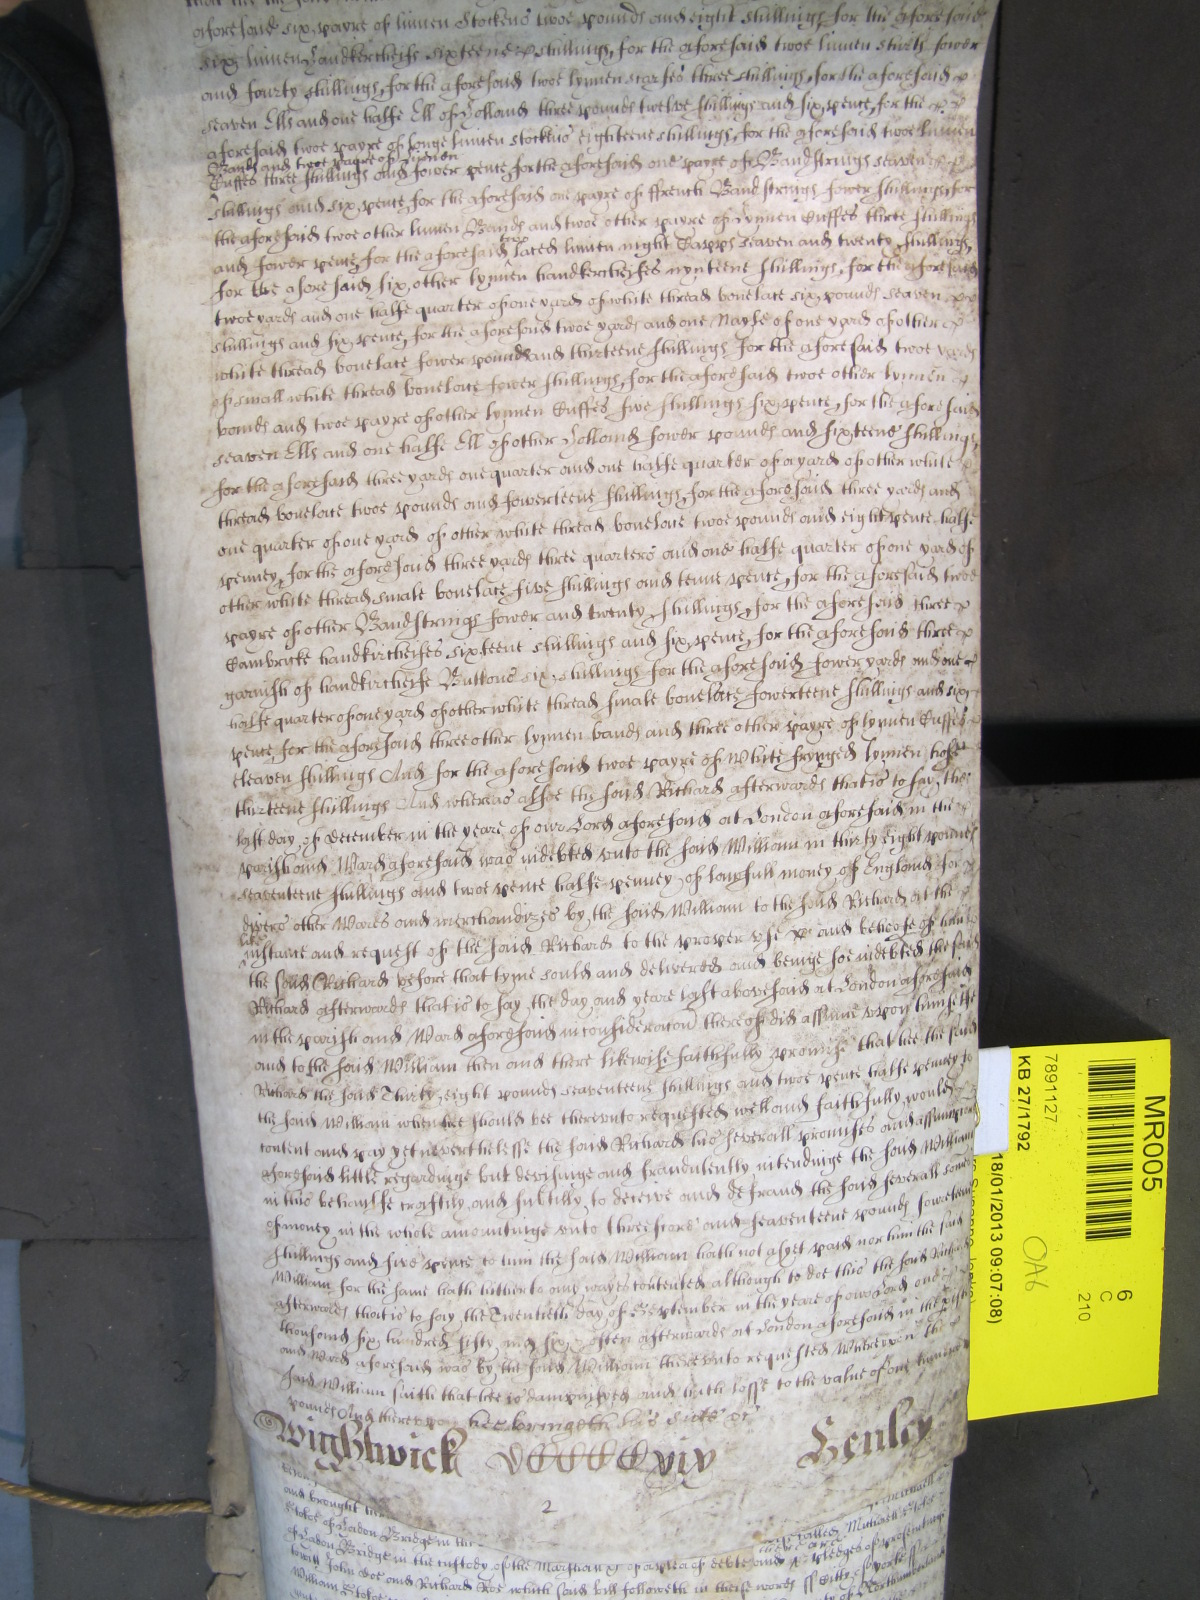 aforesaid six payre of linnen Stockens twoe pounds and eight shillings, for the aforesaid
six linnen handkercheifs sixteene shillings, for the aforesaid twoe linnen shirts fower
and fourty shillings, for the aforesaid twoe lynnen scarfes three shillings, for the aforesaid
seaven Ells and one halfe Ell of Holland three pounds twelve shillings and six pence, for the
aforesaid twoe payre of longe linnen stockens eighteene shillings, for the aforesaid twoe linnen
Bands and twoe payre of lynnen
Cuffes three shillings and fower pence, for the aforesaid one payre of Bandstrings seaven
shillings and six pence, for the aforesaid one payre of ffrench Bandstrings fower shillings, for
the aforesaid twoe other linnen Bands and twoe other payre of lynnen Cuffes three shillings
and fower pence, for the aforesaid laced linnen night Capps seaven and twenty shillings,
for the aforesaid six other lynnen handkercheifes nynteene shillings, for the aforesaid
twoe yards and one halfe quarter of one yard of white thread bonelace six pounds seaven
shillings and six pence, for the aforesaid twoe yards and one Nayle of one yard of other
white thread bonelace fower pounds and thirteene shillings for the aforesaid twoe yards
of small white thread bonelace fower shillings, for the aforesaid twoe other lynnen
bands and twoe payre of other lynnen Cuffes five shillings six pence, for the aforesaid
seaven Ells and one halfe Ell of other Holland fower pounds and sixteene shillings,
for the aforesaid three yards one quarter and one halfe quarter of a yard of other white
thread bonelace twoe pounds and fowerteene shillings, for the aforesaid three yards and
one quarter of one yard of other white thread bonelace twoe pounds and eight pence halfe
penney, for the aforesaid three yards three quarters and one halfe quarter of one yard of
other white thread smale bonelace five shillings and tenne pence, for the aforesaid twoe
payre of other Bandstrings fower and twenty shillings, for the aforesaid three
Cambricke handkircheifes sixteene shillings and six pence, for the aforesaid three
garnish of handkircheife Buttons six shillings for the aforesaid fower yards and one
halfe quarter of one yard of other white thread smale bonelace fowerteene shillings and six
pence, for the aforesaid three other lynnen bands and three other payre of lynnen Cuffes
eleaven shillings And for the aforesaid twoe payre of white frynged lynnen hose
thirteene shillings And whereas alsoe the said Richard afterwards that is to say the
last day of december in the yeare of our Lord aforesaid at London aforesaid in the
parish and Ward aforesaid was indebted unto the said William in thirty eight pounds
seaventeene shillings and twoe pence halfe penney of lawfull money of England for
divers other Wares and merchandizes by the said William to the said Richard at the
like
instance and request of the said Richard to the proper use and behoofe of him
the said Richard before that tyme sould and delivered and beinge soe indebted the said
Richard afterwards that is to say the day and yeare last abovesaid at London aforesaid
in the parish and Ward aforesaid in consideracon thereof did assume upon himselfe
and to the said William then and there likewise faithfully promise that hee the said
Richard the said Thirty eight pounds seaventeene shillings and twoe pence halfe penney to
the said William when hee should bee thereunto requested well and faithfully would
content and pay yet neverthelesse the said Richard his severall promises and assumptions
aforesaid little regardinge but devisinge and fraudulently intendinge the said William
in this behoulfe craftily and subtilly to deceive and defraud the said severall somes
of money in the whole amountinge unto threescore and seaventeene pounds fowerteene
shillings and five pence to him the said William hath not as yet paid nor him the said
William for the same hath hitherto any wayes contented although to doe this the said Richard
afterwards that is to say the Twentieth day of September in the yeare of our Lord one
thousand six hundred fifty and six & often afterwards at London aforesaid in the parish
and Ward aforesaid was by the said William thereunto requested Whereupon the
said William saith that hee is dampnifyed and hath losse to the value of one hundred
pounds And thereupon hee bringeth his Suite &c
Wightwick Henley
2
and brought
Stoke of London Bridge in the
called Michaell Stokes
of London Bridge in the custody of the Marshall &c of a plea of debte and pledges of prosecutinge
towitt John Doe and Richard Roe which said bill followeth in theise words ss Citty of Yorke ss
William Stokes
MR005
6
C
210
7891127
KB 27/1792
OA6
18/01/2013 09:07:08)